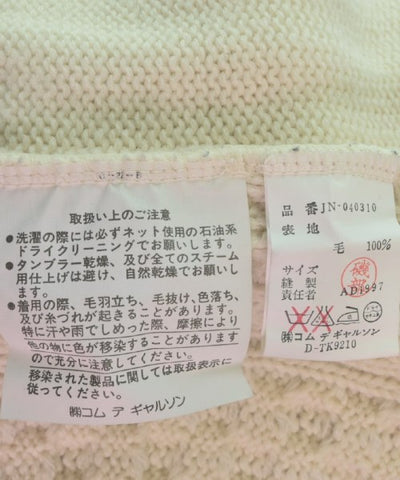 取扱い上のご注意
●洗濯の際には必ずネット使用の石油系
ドライクリーニングでお願いします。
●タンブラー乾燥、及び全てのスチーム
用仕上げは避け、自然乾燥でお願いし
ます。
●着用の際、毛羽立ち、毛抜け、色落ち、
及び糸づれが起きることがあります。
特に汗や雨でしめった際、摩擦により
他の物に色が移染することがあります
ので充分に注意してください。
移染された製品に関しては取扱表示に
従ってください。
㈱コム デ ギャルソン
品番 JN-040310
表地
毛 100%
サイズ
縫製
責任者
磯部
AD1997
㈱コム デ ギャルソン
D-TK9210